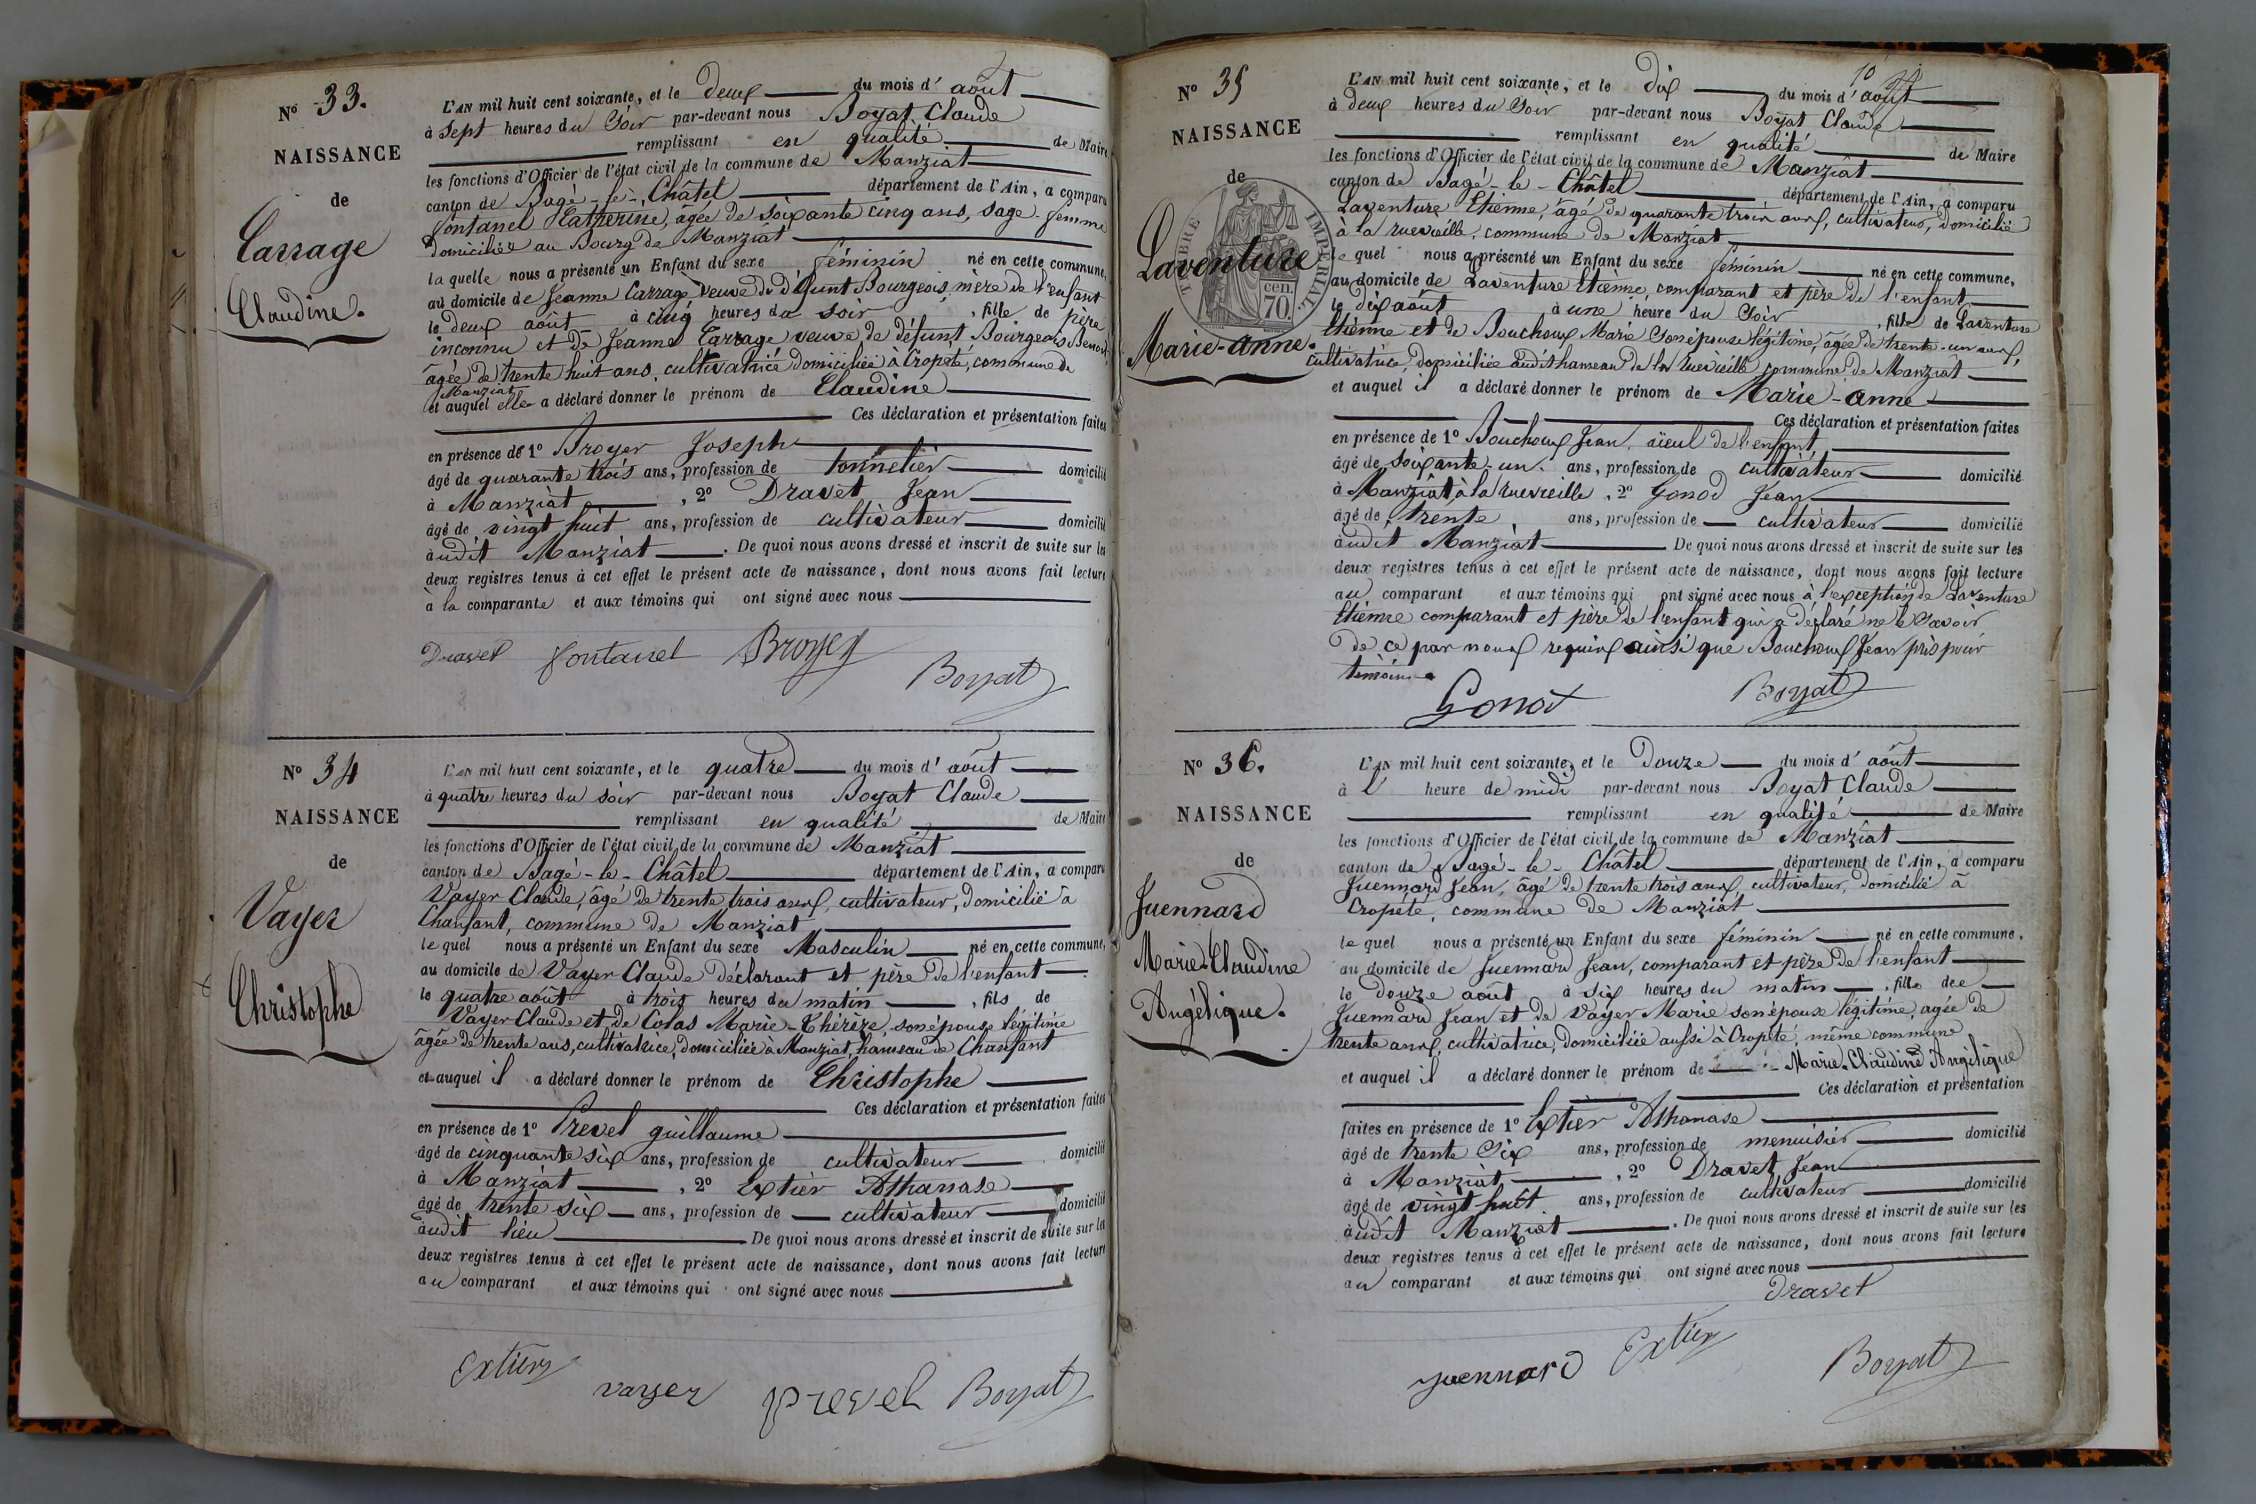 N° 33.
NAISSANCE
de
Carrage
Claudine.
L'AN mil huit cent soixante, et le deux du mois d'août
à sept heures du soir par-devant nous Boyat Claude
remplissant en qualité de Maire
les fonctions d'Officier de l'état civil de la commune de Manziat
canton de Bagé-le-Châtel département de l'Ain, a comparu
fontanel Catherine, âgée de soixante cinq ans, sage-femme
domiciliée au Bourg de Manziat
la quelle nous a présenté un Enfant du sexe féminin né en cette commune,
au domicile de Jeanne Carrage veuve de défunt Bourgeois, mère de l'enfant
le deux août à cinq heures du soir, fille de père
inconnu et de Jeanne Carrage veuve de défunt Bourgeois Benoit,
âgée de trente huit ans, cultivatrice domiciliée à Cropété, commune de
Manziat
et auquel elle a déclaré donner le prénom de Claudine
Ces déclaration et présentation faites
en présence de 1° Broyer Joseph
âgé de quarante trois ans, profession de tonnelier domicilié
à Manziat, 2° Dravet Jean
âgé de vingt huit ans, profession de cultivateur domicilié
audit Manziat. De quoi nous avons dressé et inscrit de suite sur les
deux registres tenus à cet effet le présent acte de naissance, dont nous avons fait lecture
à la comparante et aux témoins qui ont signé avec nous
Dravet fontanel Broyer
Boyat
N° 34
NAISSANCE
de
Vayer
Christophe
L'AN mil huit cent soixante, et le quatre du mois d'août
à quatre heures du soir par-devant nous Boyat Claude
remplissant en qualité de Maire
les fonctions d'Officier de l'état civil de la commune de Manziat
canton de Bagé-le-Châtel département de l'Ain, a comparu
Vayer Claude, âgé de trente trois ans, cultivateur, domicilié à
Chanfant, commune de Manziat
le quel nous a présenté un Enfant du sexe Masculin né en cette commune,
au domicile de Vayer Claude déclarant et père de l'enfant
le quatre août à trois heures du matin, fils de
Vayer Claude et de Colas Marie-Thérèze, son épouse légitime
âgée de trente ans, cultivatrice, domiciliée à Manziat, hameau de Chanfant
et auquel il a déclaré donner le prénom de Christophe
Ces déclaration et présentation faites
en présence de 1° Prevel guillaume
âgé de cinquante six ans, profession de cultivateur domicilié
à Manziat, 2° Extier Athanase
âgé de trente six ans, profession de cultivateur domicilié
audit lieu De quoi nous avons dressé et inscrit de suite sur les
deux registres tenus à cet effet le présent acte de naissance, dont nous avons fait lecture
au comparant et aux témoins qui ont signé avec nous
Extier vayer prevel Boyat
N° 35
NAISSANCE
de
TIMBRE IMPERIAL
cen.
70.
Laventure
Marie-anne.
10
L'AN mil huit cent soixante, et le dix du mois d'août
à deux heures du soir par-devant nous Boyat Claude
remplissant en qualité de Maire
les fonctions d'Officier de l'état civil de la commune de Manziat
canton de Bagé-le-Châtel département de l'Ain, a comparu
Laventure Etienne, âgé de quarante trois ans, cultivateur, domicilié
à la ruevieille, commune de Manziat
le quel nous a présenté un Enfant du sexe féminin né en cette commune,
au domicile de Laventure Etienne, comparant et père de l'enfant
le dix août à une heure du soir, fille de Laventure
Etienne et de Bouchoux Marie son épouse légitime, âgée de trente-un ans,
cultivatrice, domiciliée audit hameau de la ruevieille commune de Manziat
et auquel il a déclaré donner le prénom de Marie-anne
Ces déclaration et présentation faites
en présence de 1° Bouchoux Jean, aïeul de l'enfant,
âgé de soixante-un ans, profession de cultivateur domicilié
à Manziat à la ruevieille, 2° Gonod Jean
âgé de trente ans, profession de cultivateur domicilié
audit Manziat De quoi nous avons dressé et inscrit de suite sur les
deux registres tenus à cet effet le présent acte de naissance, dont nous avons fait lecture
au comparant et aux témoins qui ont signé avec nous à l'exception de Laventure
Etienne comparant et père de l'enfant qui a déclaré ne le savoir
de ce par nous requis ainsi que Bouchoux Jean pris pour
témoin
Gonod Boyat
N° 36.
NAISSANCE
de
Juennard
Marie-Claudine
Angélique.
L'AN mil huit cent soixante, et le Douze du mois d'août
à l' heure de midi par-devant nous Boyat Claude
remplissant en qualité de Maire
les fonctions d'Officier de l'état civil de la commune de Manziat
canton de Bagé-le-Châtel département de l'Ain, a comparu
Juennard Jean, âgé de trente trois ans, cultivateur, domicilié à
Cropété, commune de Manziat
le quel nous a présenté un Enfant du sexe féminin né en cette commune.
au domicile de Juennard Jean, comparant et père de l'enfant
le douze août à six heures du matin, fille de
Juennard Jean et de Vayer Marie son épouse légitime, agée de
trente ans, cultivatrice, domiciliée aussi à Cropété, même commune
et auquel il a déclaré donner le prénom de Marie-Claudine Angélique
Ces déclaration et présentation
faites en présence de 1° Extier Athanase
âgé de trente six ans, profession de menuisier domicilié
à Manziat, 2° Dravet Jean
âgé de vingt huit ans, profession de cultivateur domicilié
audit Manziat. De quoi nous avons dressé et inscrit de suite sur les
deux registres tenus à cet effet le présent acte de naissance, dont nous avons fait lecture
au comparant et aux témoins qui ont signé avec nous
Dravet
juennard Extier Boyat